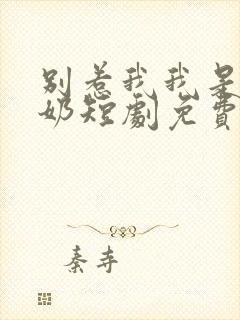 别惹我我是
奶短劇免費
秦寺